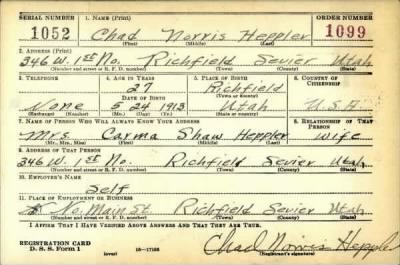 SERIAL NUMBER 1. NAME (Print) ORDER NUMBER
1052 Chad Norris Heppler 1099
(First) (Middle) (Last)
2. ADDRESS (Print)
346 W. 1st No. Richfield Sevier Utah
(Number and street or R. F. D. number) (Town) (County) (State)
3. TELEPHONE 4. AGE IN YEARS 5. PLACE OF BIRTH 6. COUNTRY OF CITIZENSHIP
27 Richfield
DATE OF BIRTH (Town or county)
None 5 24 1913 Utah U.S.A
(Exchange) (Number) (Mo.) (Day) (Yr.) (State or country)
7. NAME OF PERSON WHO WILL ALWAYS KNOW YOUR ADDRESS 8. RELATIONSHIP OF THAT PERSON
Mrs Carma Shaw Heppler wife
(Mr., Mrs., Miss) (First) (Middle) (Last)
9. ADDRESS OF THAT PERSON
346 W. 1st No. Richfield Sevier Utah
(Number and street or R. F. D. number) (Town) (County) (State)
10. EMPLOYER'S NAME
Self
11. PLACE OF EMPLOYMENT OR BUSINESS
No. Main St. Richfield Sevier Utah
(Number and street or R. F. D. number) (Town) (County) (State)
I AFFIRM THAT I HAVE VERIFIED ABOVE ANSWERS AND THAT THEY ARE TRUE.
REGISTRATION CARD
D. S. S. Form 1 (over) 16-17105 Chad Norris Heppler
(Registrant's signature)